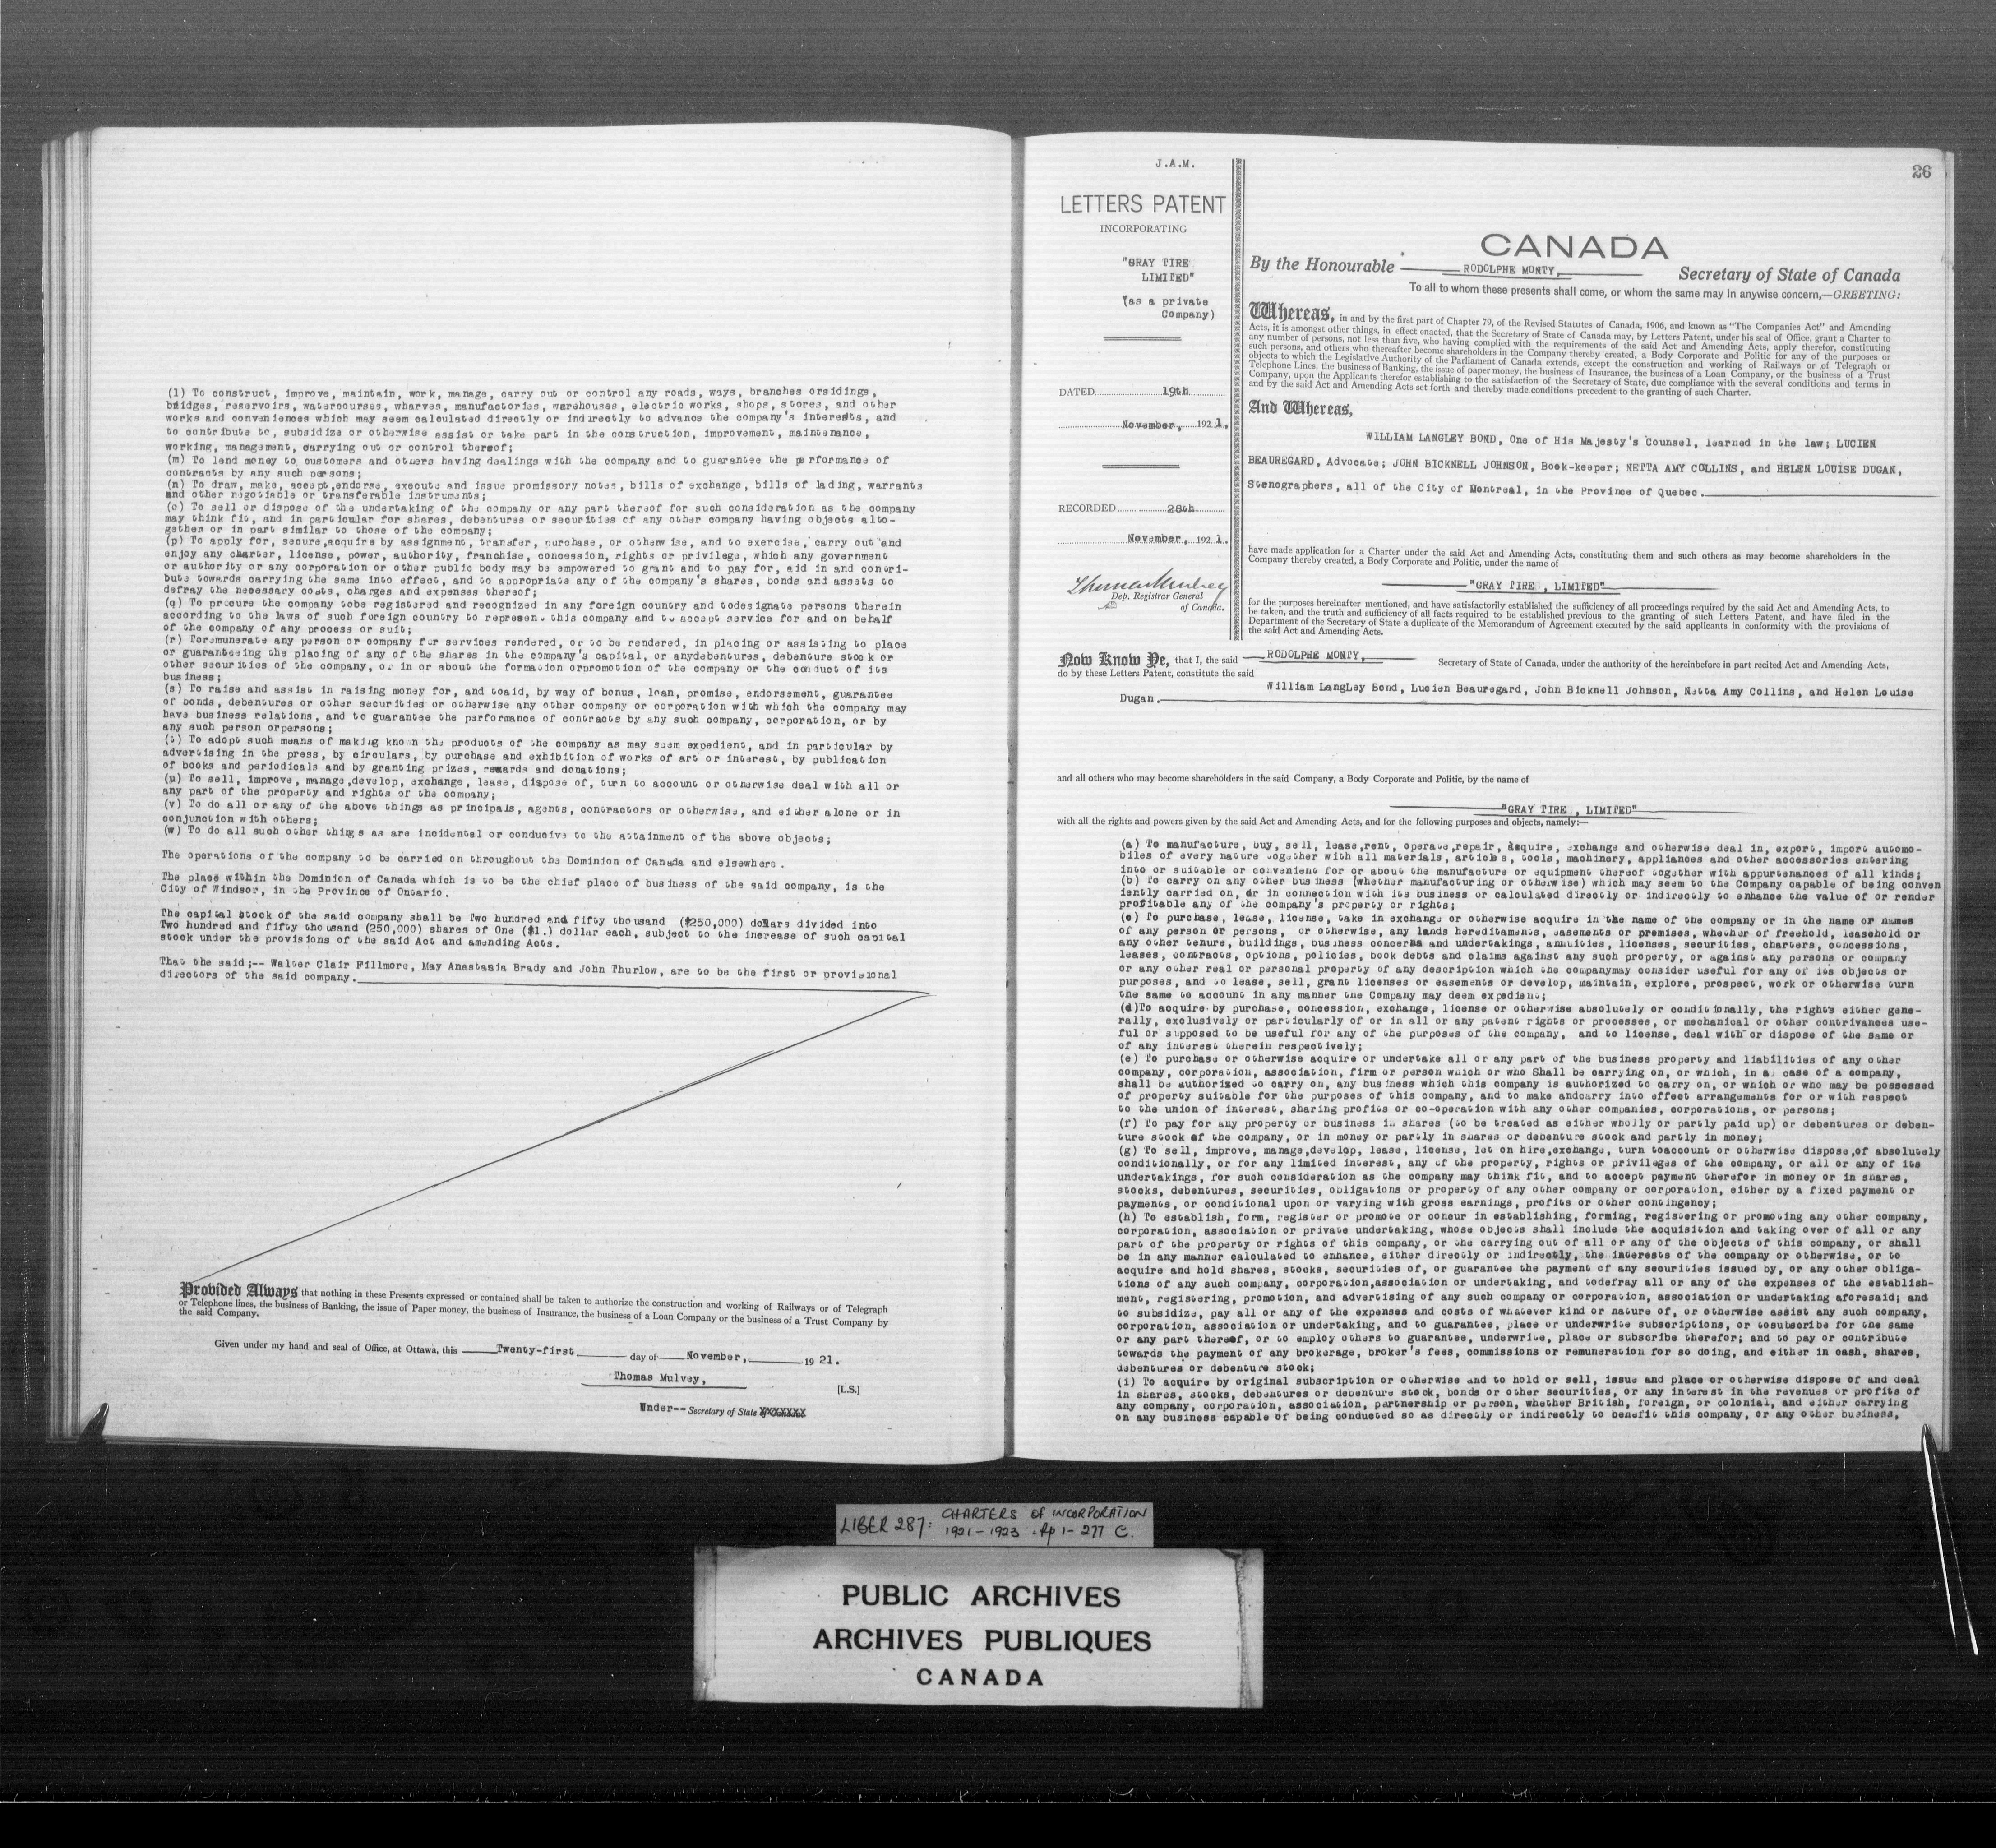 (l) To construct, improve, maintain, work, manage, carry out or control any roads, ways, branches orsidings,
bridges, reservoirs, watercourses, wharves, manufactories, warehouses, electric works, shops, stores, and other
works and conveniences which may seem calculated directly or indirectly to advance the company's interests, and
to contribute to, subsidize or otherwise assist or take part in the construction, improvement, maintenance,
working, management, carrying out or control thereof;
(m) To lend money to customers and others having dealings with the company and to guarantee the performance of
contracts by any such persons;
(n) To draw, make, accept,endorse, execute and issue promissory notes, bills of exchange, bills of lading, warrants
and other negotiable or transferable instruments;
(o) To sell or dispose of the undertaking of the company or any part thereof for such consideration as the company
may think fit, and in particular for shares, debentures or securities of any other company having objects alto-
gether or in part similar to those of the company;
(p) To apply for, secure,acquire by assignment, transfer, purchase, or otherwise, and to exercise, carry out and
enjoy any charter, license, power, authority, franchise, concession, rights or privilege, which any government
or authority or any corporation or other public body may be empowered to grant and to pay for, aid in and contri-
bute towards carrying the same into effect, and to appropriate any of the company's shares, bonds and assets to
defray the necessary costs, charges and expenses thereof;
(q) To procure the company tobe registered and recognized in any foreign country and todesignate persons therein
according to the laws of such foreign country to represent this company and to accept service for and on behalf
of the company of any process or suit;
(r) Toremunerate any person or company for services rendered, or to be rendered, in placing or assisting to place
or guaranteeing the placing of any of the shares in the company's capital, or anydebentures, debenture stock or
other securities of the company, or in or about the formation orpromotion of the company or the conduct of its
business;
(s) To raise and assist in raising money for, and toaid, by way of bonus, loan, promise, endorsement, guarantee
of bonds, debentures or other securities or otherwise any other company or corporation with which the company may
have business relations, and to guarantee the performance of contracts by any such company, corporation, or by
any such person orpersons;
(t) To adopt such means of making known the products of the company as may seem expedient, and in particular by
advertising in the press, by circulars, by purchase and exhibition of works of art or interest, by publication
of books and periodicals and by granting prizes, rewards and donations;
(u) To sell, improve, manage,develop, exchange, lease, dispose of, turn to account or otherwise deal with all or
any part of the property and rights of the company;
(v) To do all or any of the above things as principals, agents, contractors or otherwise, and either alone or in
conjunction with others;
(w) To do all such other things as are incidental or conducive to the attainment of the above objects;
The operations of the company to be carried on throughout the Dominion of Canada and elsewhere.
The place within the Dominion of Canada which is to be the chief place of business of the said company, is the
City of Windsor, in the Province of Ontario.
The capital stock of the said company shall be Two hundred and fifty thousand ($250,000) dollars divided into
Two hundred and fifty thousand (250,000) shares of One ($1.) dollar each, subject to the increase of such capital
stock under the provisions of the said Act and amending Acts.
That the said;-- Walter Clair Fillmore, May Anastasia Brady and John Thurlow, are to be the first or provisional
directors of the said company.
Provided Always that nothing in these Presents expressed or contained shall be taken to authorize the construction and working of Railways or of Telegraph
or Telephone lines, the business of Banking, the issue of Paper money, the business of Insurance, the business of a Loan Company or the business of a Trust Company by
the said Company.
Given under my hand and seal of Office, at Ottawa, this Twenty-first day of November, 19 21.
Thomas Mulvey,
[L.S.]
Under-- Secretary of State XXXXXXXX
26
J.A.M.
LETTERS PATENT
INCORPORATING
"GRAY TIRE
LIMITED"
(as a private
Company)
DATED 19th
November, 1921.
RECORDED 28th
November, 1921.
Thomas Mulvey
Dep. Registrar General
of Canada.
CANADA
By the Honourable RODOLPHE MONTY, Secretary of State of Canada
To all to whom these presents shall come, or whom the same may in anywise concern,—GREETING:
Whereas, in and by the first part of Chapter 79, of the Revised Statutes of Canada, 1906, and known as "The Companies Act" and Amending
Acts, it is amongst other things, in effect enacted, that the Secretary of State of Canada may, by Letters Patent, under his seal of Office, grant a Charter to
any number of persons, not less than five, who having complied with the requirements of the said Act and Amending Acts, apply therefor, constituting
such persons, and others who thereafter become shareholders in the Company thereby created, a Body Corporate and Politic for any of the purposes or
objects to which the Legislative Authority of the Parliament of Canada extends, except the construction and working of Railways or of Telegraph or
Telephone Lines, the business of Banking, the issue of paper money, the business of Insurance, the business of a Loan Company, or the business of a Trust
Company, upon the Applicants therefor establishing to the satisfaction of the Secretary of State, due compliance with the several conditions and terms in
and by the said Act and Amending Acts set forth and thereby made conditions precedent to the granting of such Charter.
And Whereas,
WILLIAM LANGLEY BOND, One of His Majesty's Counsel, learned in the law; LUCIEN
BEAUREGARD, Advocate; JOHN BICKNELL JOHNSON, Book-keeper; NETTA AMY COLLINS, and HELEN LOUISE DUGAN,
Stenographers, all of the City of Montreal, in the Province of Quebec.
have made application for a Charter under the said Act and Amending Acts, constituting them and such others as may become shareholders in the
Company thereby created, a Body Corporate and Politic, under the name of
"GRAY TIRE , LIMITED"
for the purposes hereinafter mentioned, and have satisfactorily established the sufficiency of all proceedings required by the said Act and Amending Acts, to
be taken, and the truth and sufficiency of all facts required to be established previous to the granting of such Letters Patent, and have filed in the
Department of the Secretary of State a duplicate of the Memorandum of Agreement executed by the said applicants in conformity with the provisions of
the said Act and Amending Acts.
Now Know Ye, that I, the said RODOLPHE MONTY, Secretary of State of Canada, under the authority of the hereinbefore in part recited Act and Amending Acts,
do by these Letters Patent, constitute the said
William Langley Bond, Lucien Beauregard, John Bicknell Johnson, Netta Amy Collins, and Helen Louise
Dugan.
and all others who may become shareholders in the said Company, a Body Corporate and Politic, by the name of
"GRAY TIRE , LIMITED"
with all the rights and powers given by the said Act and Amending Acts, and for the following purposes and objects, namely:—
(a) To manufacture, buy, sell, lease,rent, operate,repair, acquire, exchange and otherwise deal in, export, import automo-
biles of every nature together with all materials, articles, tools, machinery, appliances and other accessories entering
into or suitable or convenient for or about the manufacture or equipment thereof together with appurtenances of all kinds;
(b) To carry on any other business (whether manufacturing or otherwise) which may seem to the Company capable of being conven
iently carried on, or in connection with its business or calculated directly or indirectly to enhance the value of or render
profitable any of the company's property or rights;
(c) To purchase, lease, license, take in exchange or otherwise acquire in the name of the company or in the name or names
of any person or persons, or otherwise, any lands hereditaments, easements or premises, whether of freehold, leasehold or
any other tenure, buildings, business concerns and undertakings, annuities, licenses, securities, charters, concessions,
leases, contracts, options, policies, book debts and claims against any such property, or against any persons or company
or any other real or personal property of any description which the companymay consider useful for any of its objects or
purposes, and to lease, sell, grant licenses or easements or develop, maintain, explore, prospect, work or otherwise turn
the same to account in any manner the Company may deem expedient;
(d)To acquire by purchase, concession, exchange, license or otherwise absolutely or conditionally, the rights either gene-
rally, exclusively or particularly of or in all or any patent rights or processes, or mechanical or other contrivances use-
ful or supposed to be useful for any of the purposes of the company, and to license, deal with or dispose of the same or
of any interest therein respectively;
(e) To purchase or otherwise acquire or undertake all or any part of the business property and liabilities of any other
company, corporation, association, firm or person which or who Shall be carrying on, or which, in a case of a company,
shall be authorized to carry on, any business which this company is authorized to carry on, or which or who may be possessed
of property suitable for the purposes of this company, and to make andcarry into effect arrangements for or with respect
to the union of interest, sharing profits or co-operation with any other companies, corporations, or persons;
(f) To pay for any property or business in shares (to be treated as either wholly or partly paid up) or debentures or deben-
ture stock of the company, or in money or partly in shares or debenture stock and partly in money;
(g) To sell, improve, manage,develop, lease, license, let on hire,exchange, turn toaccount or otherwise dispose,of absolutely
conditionally, or for any limited interest, any of the property, rights or privileges of the company, or all or any of its
undertakings, for such consideration as the company may think fit, and to accept payment therefor in money or in shares,
stocks, debentures, securities, obligations or property of any other company or corporation, either by a fixed payment or
payments, or conditional upon or varying with gross earnings, profits or other contingency;
(h) To establish, form, register or promote or concur in establishing, forming, registering or promoting any other company,
corporation, association or private undertaking, whose objects shall include the acquisition and taking over of all or any
part of the property or rights of this company, or the carrying out of all or any of the objects of this company, or shall
be in any manner calculated to enhance, either directly or indirectly, the interests of the company or otherwise, or to
acquire and hold shares, stocks, securities of, or guarantee the payment of any securities issued by, or any other obliga-
tions of any such company, corporation,association or undertaking, and todefray all or any of the expenses of the establish-
ment, registering, promotion, and advertising of any such company or corporation, association or undertaking aforesaid; and
to subsidize, pay all or any of the expenses and costs of whatever kind or nature of, or otherwise assist any such company,
corporation, association or undertaking, and to guarantee, place or underwrite subscriptions, or tosubscribe for the same
or any part thereof, or to employ others to guarantee, underwrite, place or subscribe therefor; and to pay or contribute
towards the payment of any brokerage, broker's fees, commissions or remuneration for so doing, and either in cash, shares,
debentures or debenture stock;
(i) To acquire by original subscription or otherwise and to hold or sell, issue and place or otherwise dispose of and deal
in shares, stocks, debentures or debenture stock, bonds or other securities, or any interest in the revenues or profits of
any company, corporation, association, partnership or person, whether British, foreign, or colonial, and either carrying
on any business capable of being conducted so as directly or indirectly to benefit this company, or any other business,
LIBER 287: CHARTERS OF INCORPORATION
1921-1923 - Pp 1-277 C.
PUBLIC ARCHIVES
ARCHIVES PUBLIQUES
CANADA